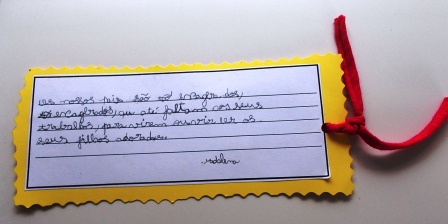 os nossos pais são tão engraçados,
engraçados, que até faltam aos seus
trabalhos, para virem ouvir ler os
seus filhos adorados.
Madalena